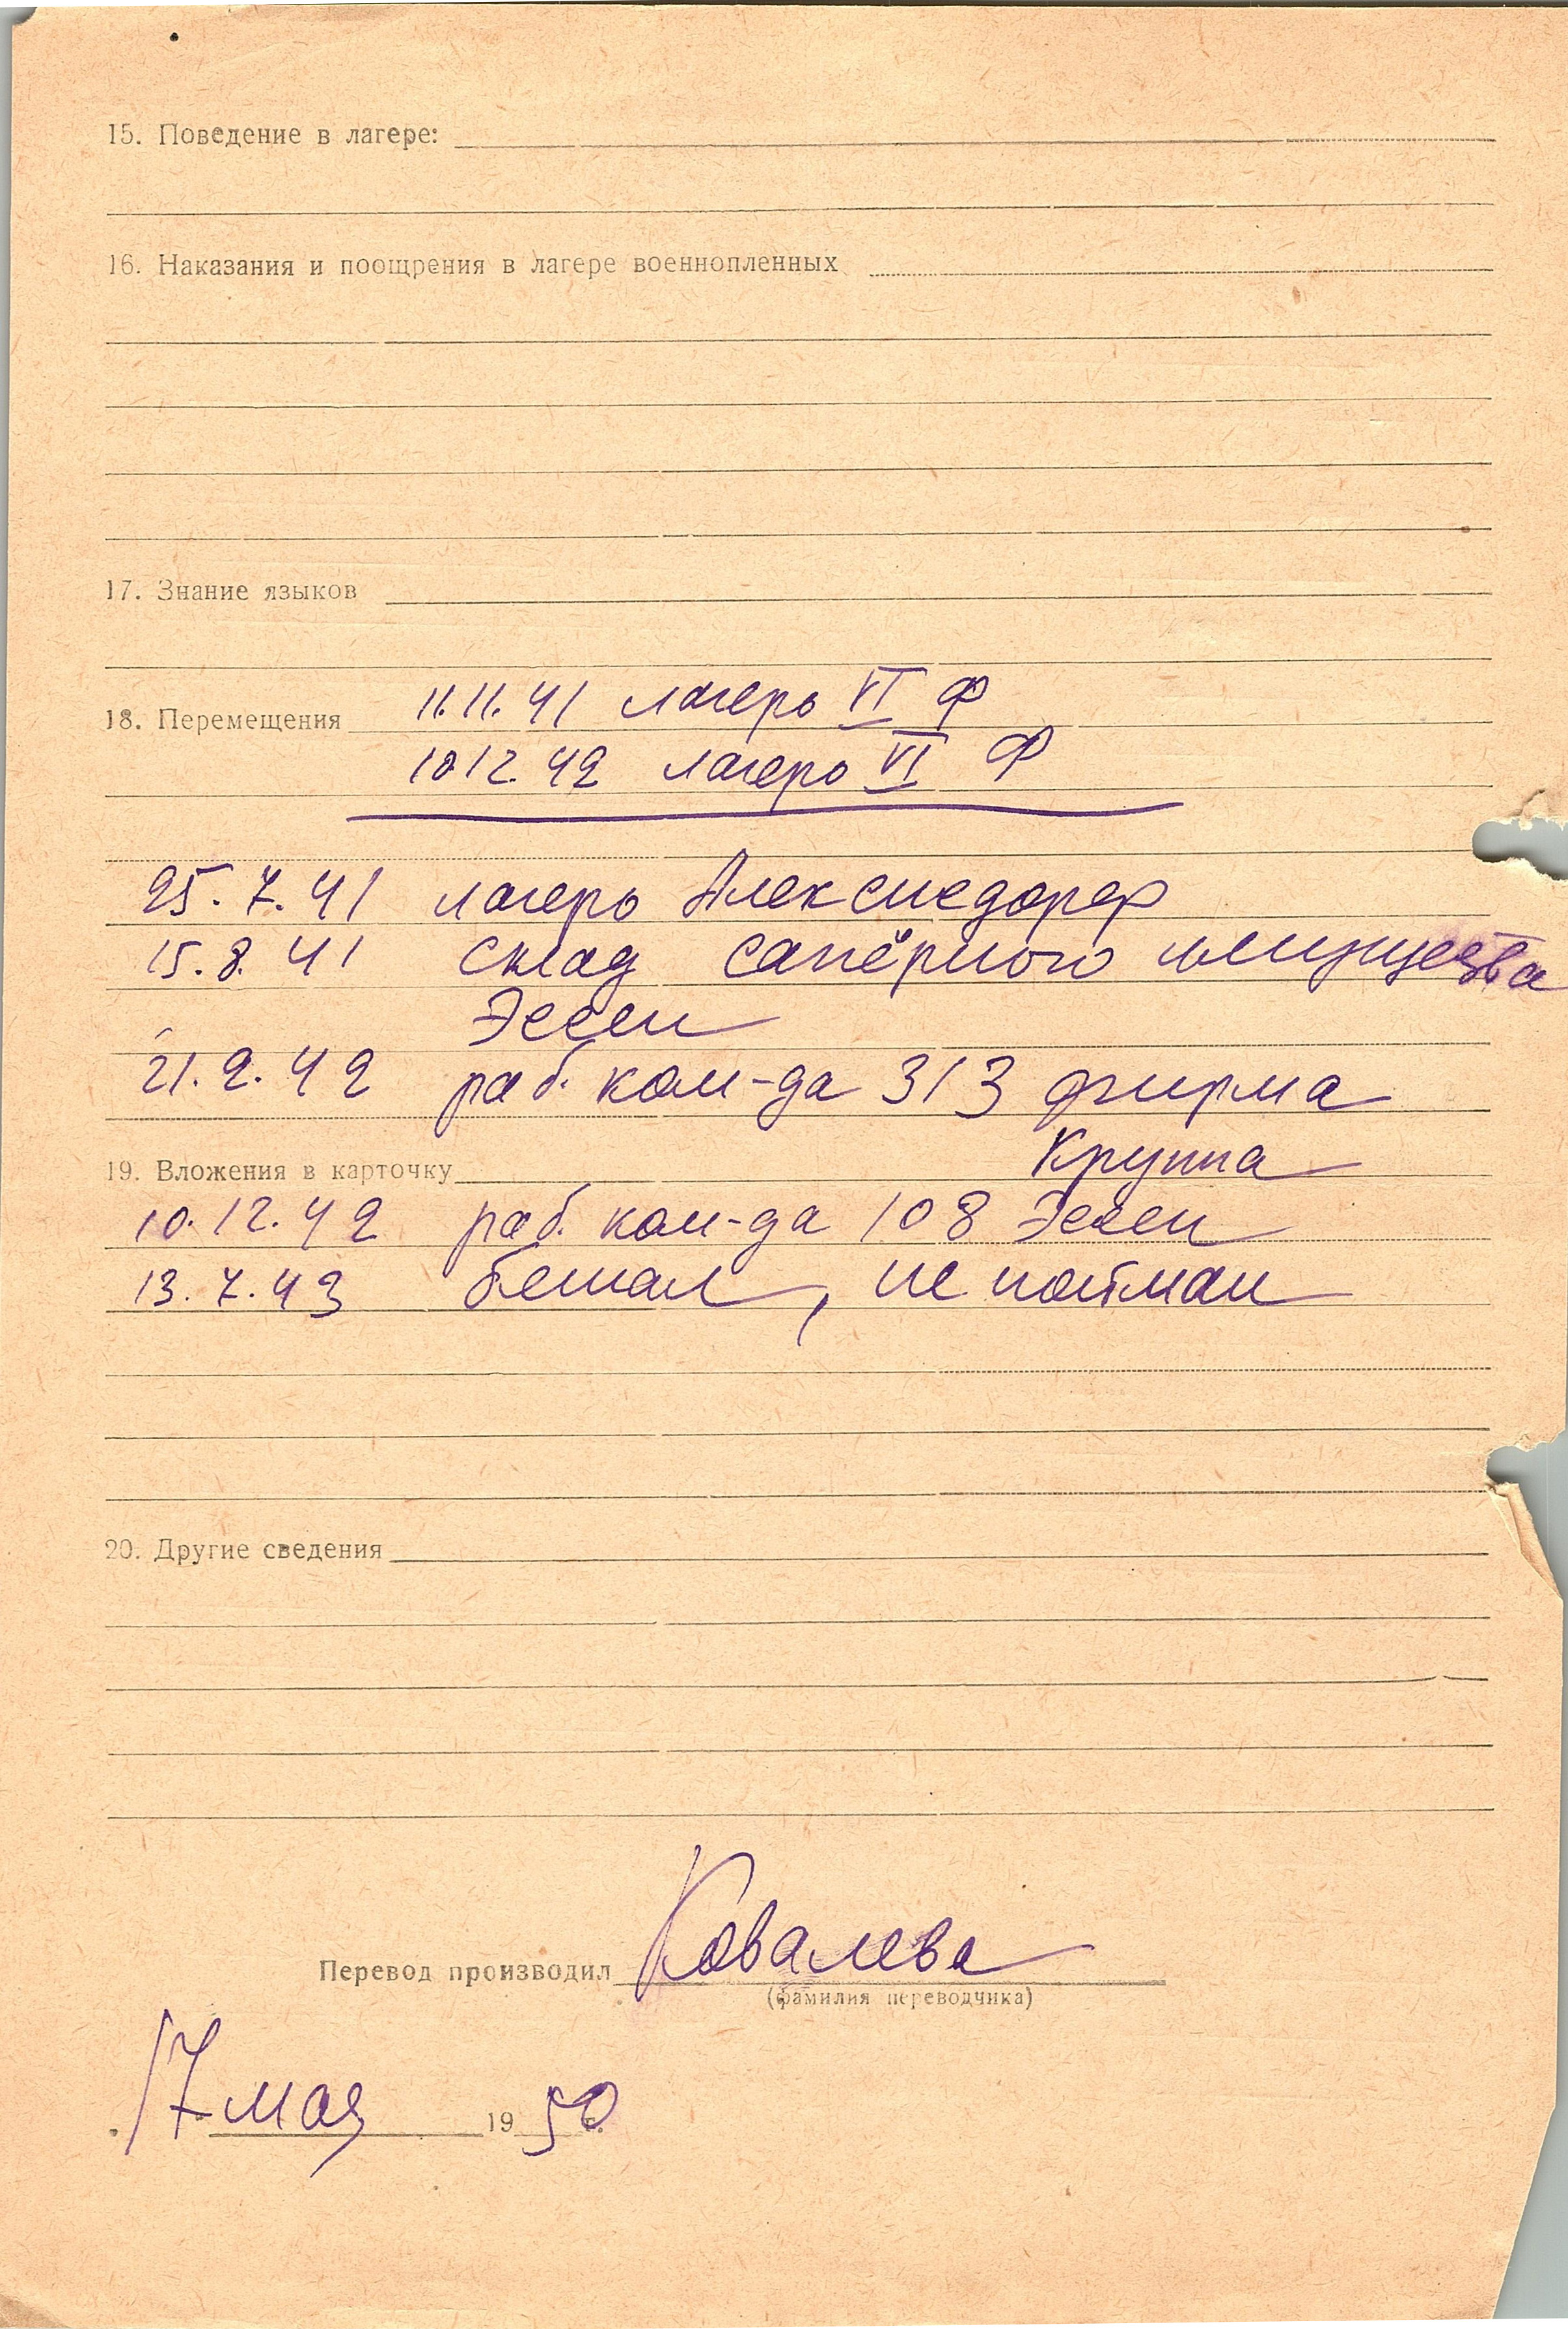 15. Поведение в лагере:
16. Наказания и поощрения в лагере военнопленных
17. Знание языков
18. Перемещения 11.11.41 лагерь VI Ф
10.12.42 лагерь VI Ф
25.7.41 лагерь Алексисдорф
15.8.41 склад сапёрного имущества
Эссен
21.2.42 раб. ком-да 313 фирма
Круппа
19. Вложения в карточку
10.12.42 раб. ком-да 108 Эссен
13.7.43 бежал, не пойман
20. Другие сведения
Перевод производил Ковалева
(фамилия переводчика)
17 мая 1950 г.